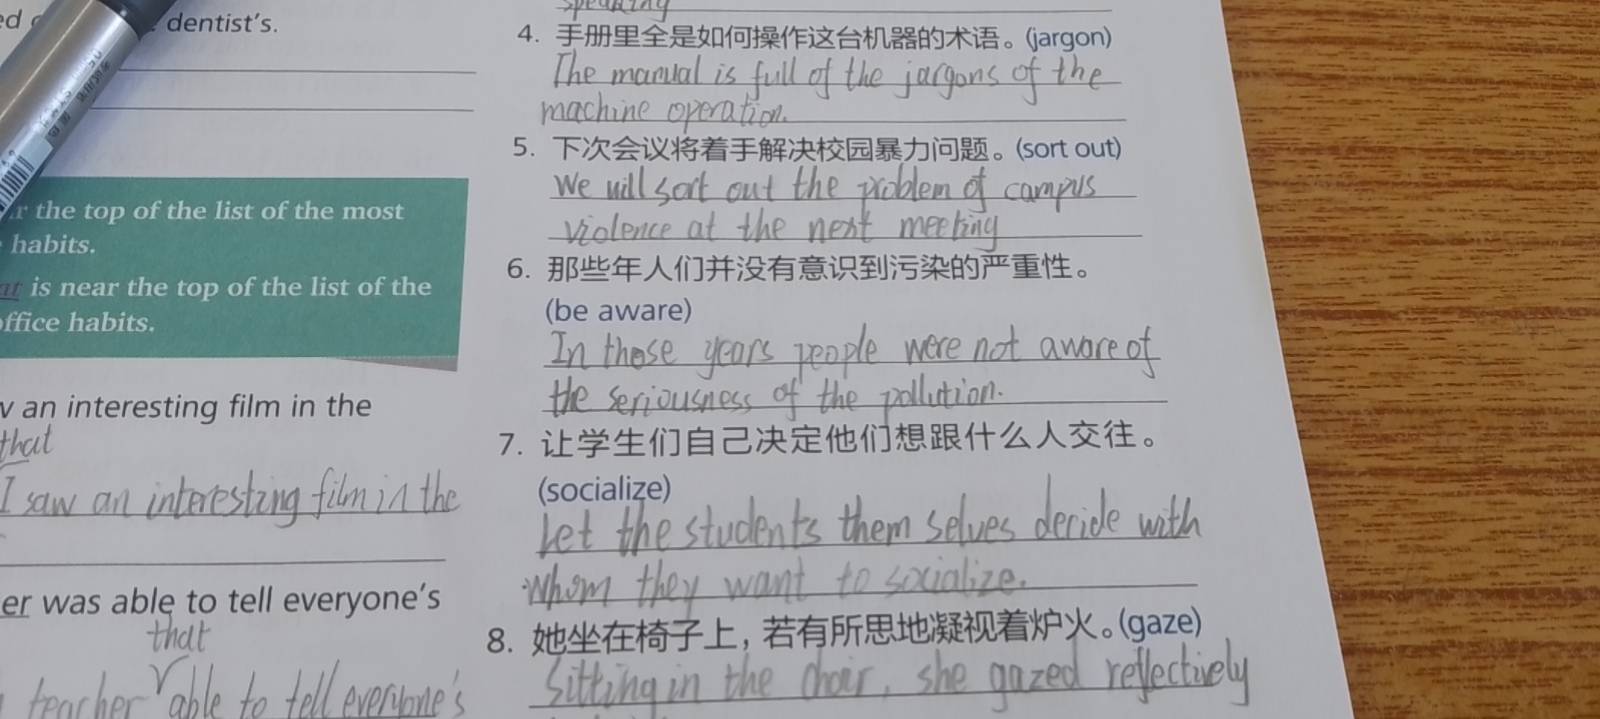 dentist's.
r the top of the list of the most
habits.
is near the top of the list of the
ffice habits.
v an interesting film in the
that
I saw an interesting film in the
er was able to tell everyone's
that
teacher able to tell everyone's
speaking
4. 手册里全是如何操作这台机器的术语。(jargon)
The manual is full of the jargons of the
machine operation.
5. 下次会议将着手解决校园暴力问题。(sort out)
We will sort out the problem of campus
violence at the next meeting
6. 那些年人们并没有意识到污染的严重性。
(be aware)
In those years people were not aware of
the seriousness of the pollution.
7. 让学生们自己决定他们想跟什么人交往。
(socialize)
Let the students them selves decide with
whom they want to socialize.
8. 她坐在椅子上，若有所思地凝视着炉火。(gaze)
Sitting in the chair, she gazed reflectively